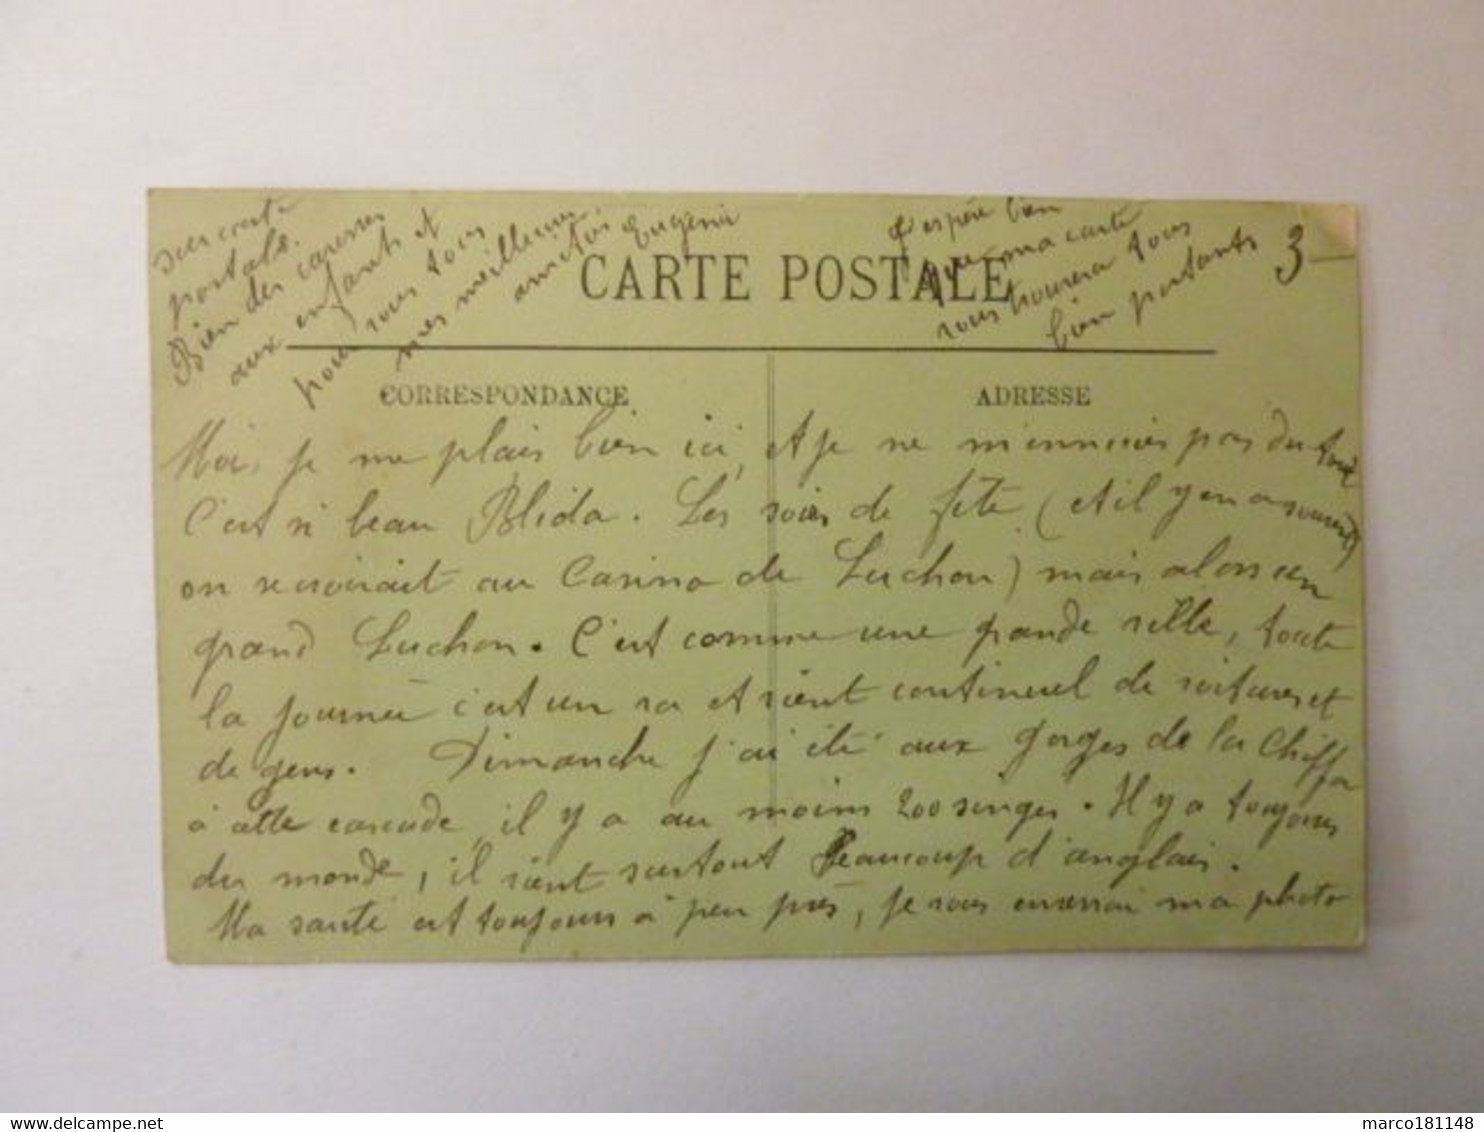 J'espère bien
que ma carte
vous trouvera tous
bien portants
3
CARTE POSTALE
CORRESPONDANCE
ADRESSE
Moi, je me plais bien ici, et je ne m'ennuies pas du tout
C'est si beau Blida. Les soirs de fête (et il y en a souvent)
on se croirait au Casino de Luchon) mais alors un
grand Luchon. C'est comme une grande ville, toute
la journée c'est un va et vient continuel de voitures et
de gens. Dimanche j'ai été aux gorges de la Chiffa
à cette cascade, il y a au moins 200 singes. Il y a toujours
du monde, il vient surtout beaucoup d'anglais.
Ma santé est toujours à peu près, je vous enverrai ma photo
sur carte
postale.
Bien des caresses
aux enfants et
pour vous tous
mes meilleures
amitiés Eugénie
delcampe.net
marco181148